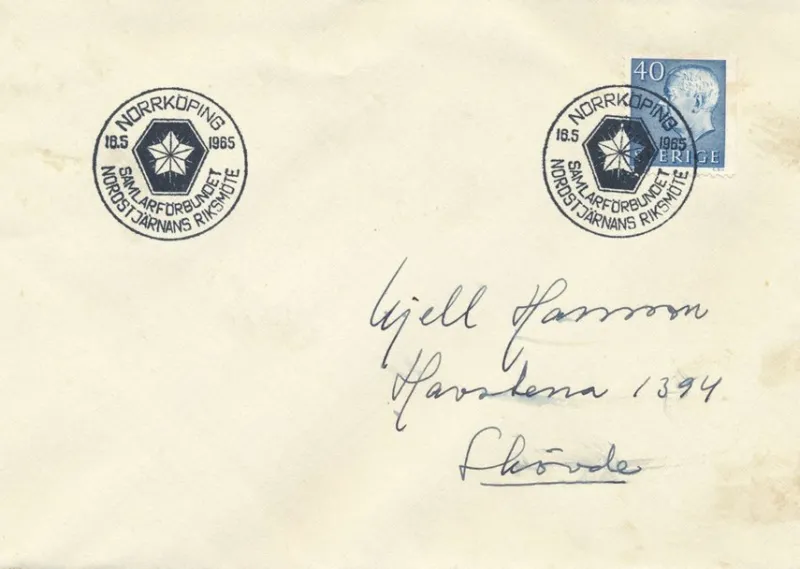 NORRKÖPING
16.5 1965
SAMLARFÖRBUNDET
NORDSTJÄRNANS RIKSMÖTE
40
SVERIGE
NORRKÖPING
16.5 1965
SAMLARFÖRBUNDET
NORDSTJÄRNANS RIKSMÖTE
Kjell Hansson
Havstena 1394
Skövde